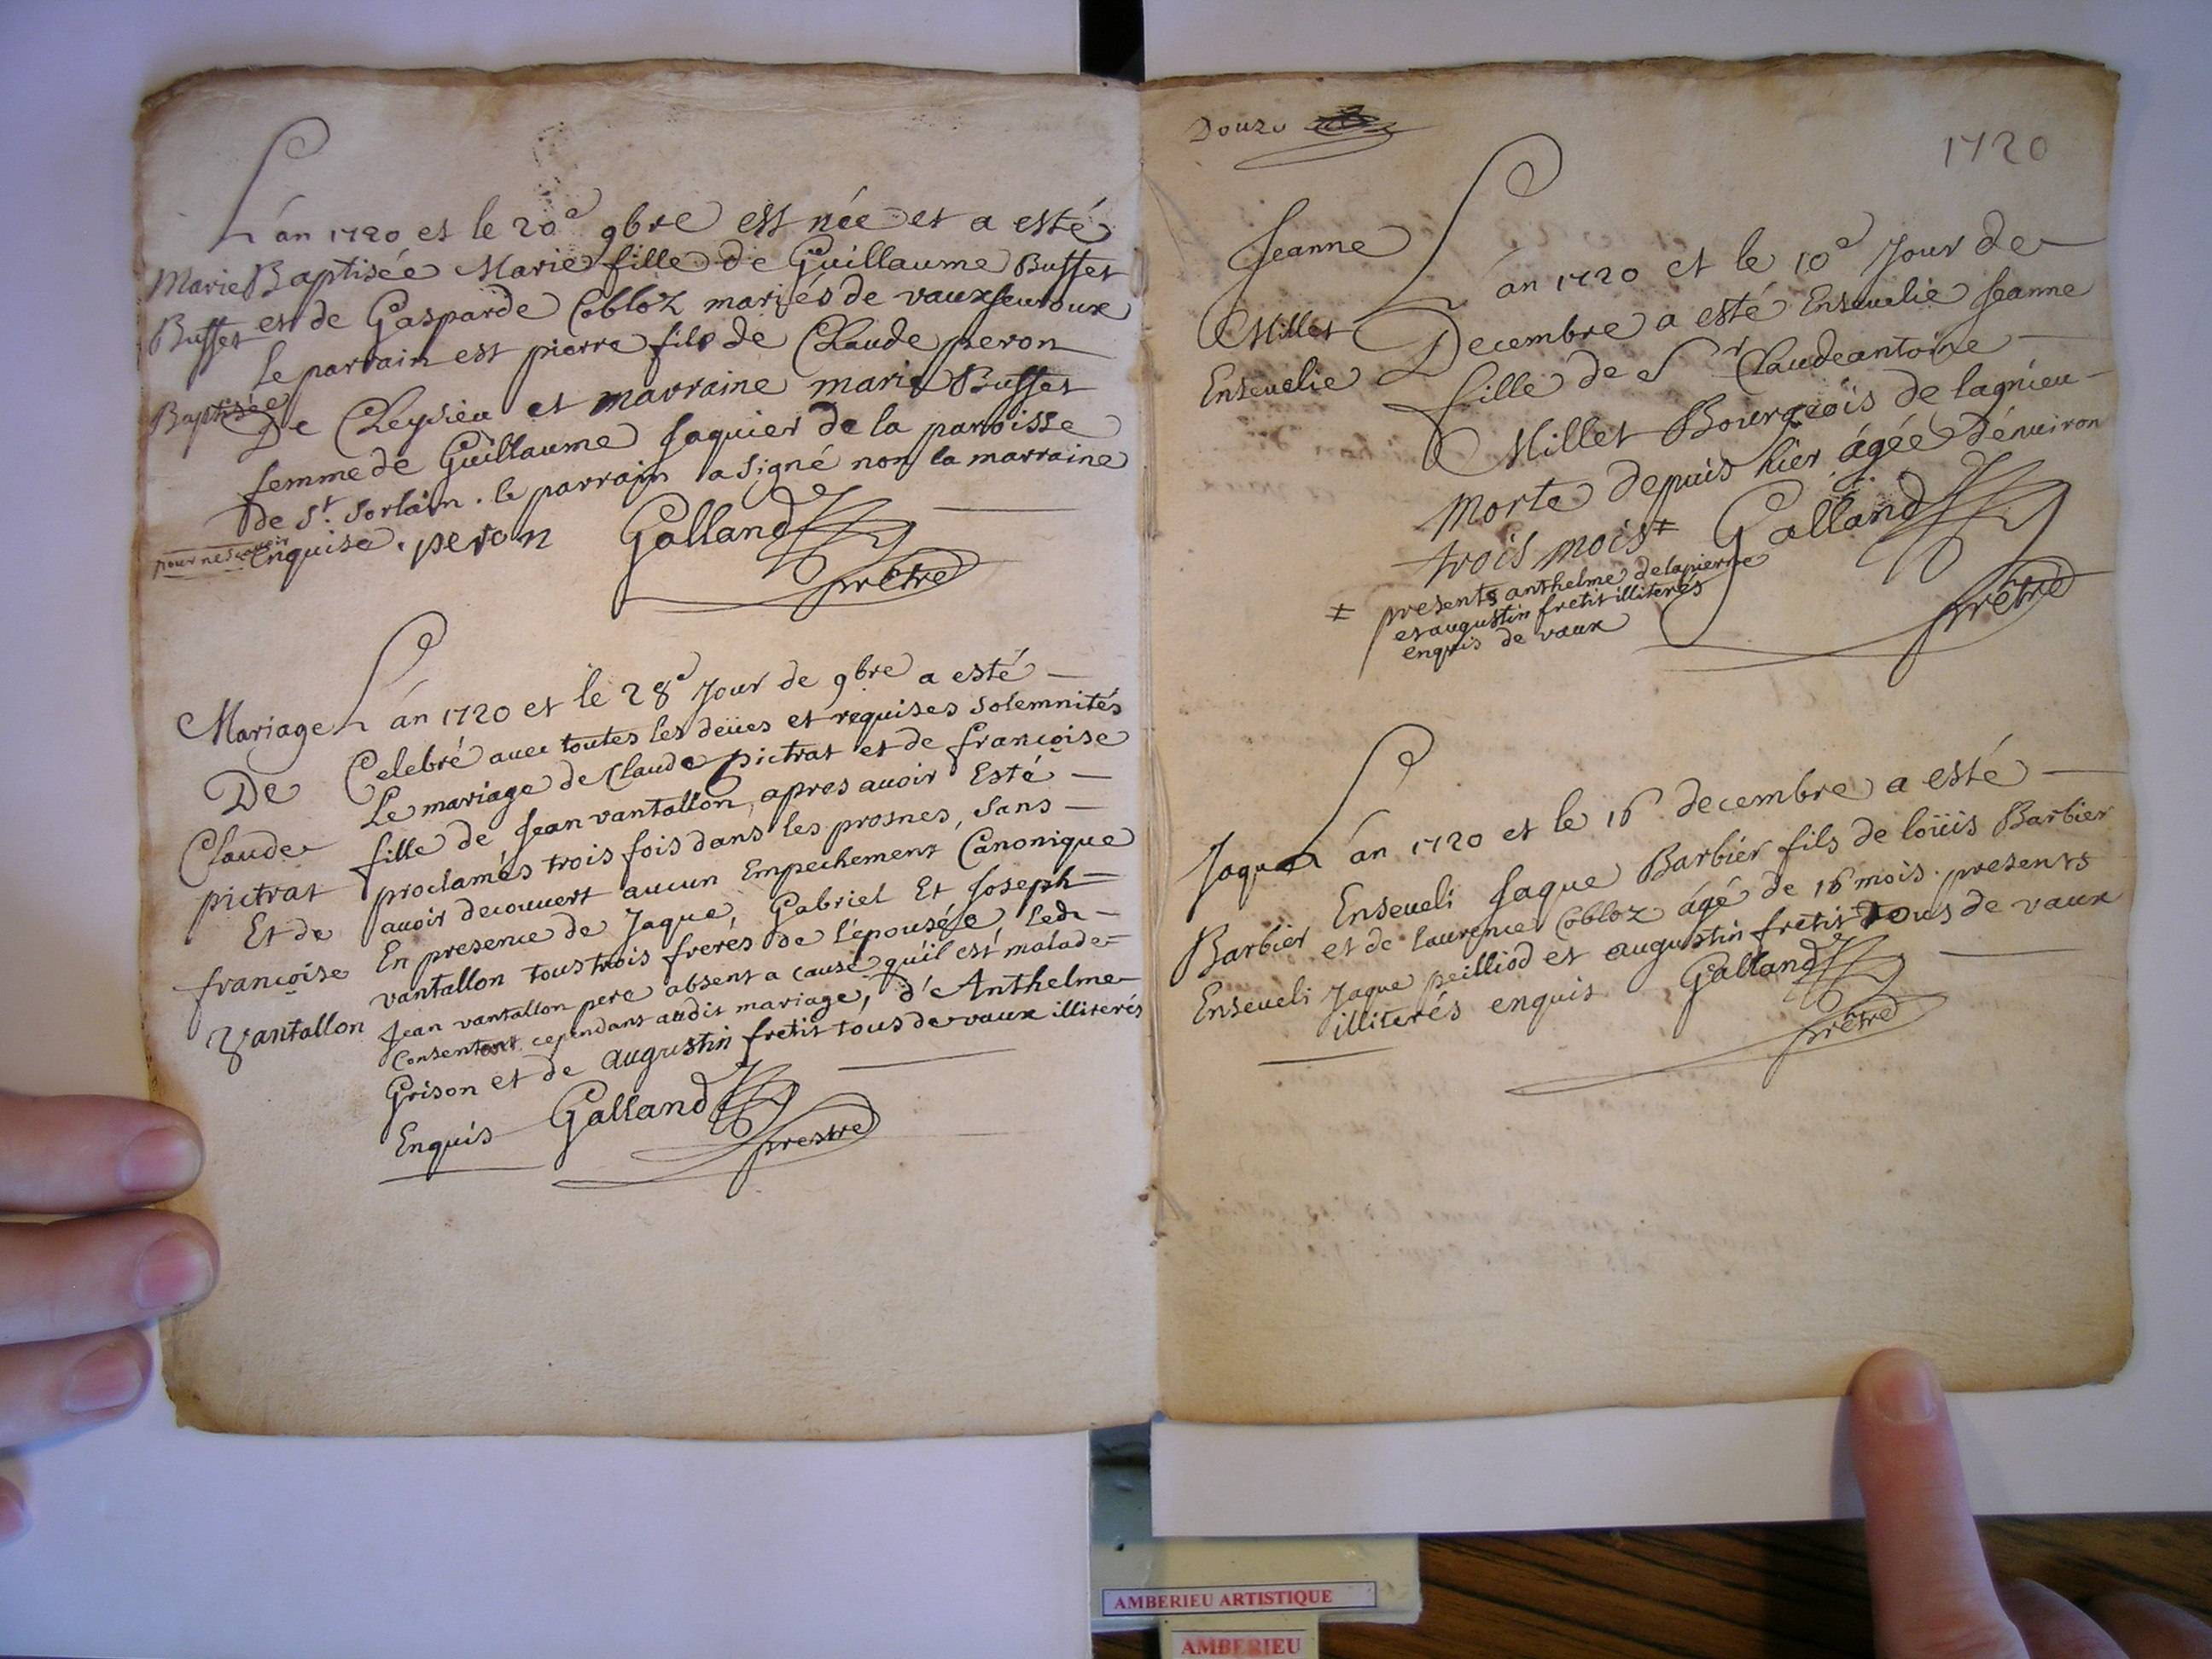 L'án 1720 et le 20e 9bre est née et a esté
Marie Baptisée Marie fille de Guillaume Buffet
Buffet et de Gasparde Cobloz mariés de vaux
le parrain est pierre fils de Claude peron
Baptisée De Cleysieu et marraine marie Buffet
femme de Guillaume Jaquier de la paroisse
de St. Sorlain. le parrain a signé non la marraine
pour ne sçavoir enquise. peron Galland
prêtre
L'án 1720 et le 28e Jour de 9bre a esté
Mariage Celebré avec toutes les deües et requises solemnités
De Le mariage de Claude pictrat et de françoise
Claude fille de Jean vantallon, apres avoir Esté
pictrat proclamés trois fois dans les prosnes, sans
Et de avoir decouvert aucun Empechement Canonique
françoise En presence de Jaque, Gabriel Et Joseph
vantallon vantallon tous trois freres de l'épousée, ledt
Jean vantallon pere absent a cause qu'il est malade
Consentant cependant audit mariage, d'Anthelme
Grison et de augustin fretit tous de vaux illiterés
Enquis Galland
prestre
Douze
1720
Jeanne L'án 1720 et le 10e Jour de
Millet Decembre a esté Ensevelie Jeanne
Ensevelie fille de Sr Claudeantoine
Millet Bourgeois de lagnieu
morte depuis hier, ágée d'environ
trois mois ‡ Galland
prêtre
‡ presents anthelme delapierre
et augustin fretit illiterés
enquis de vaux
L'án 1720 et le 16 decembre a esté
Jaque Enseveli Jaque Barbier fils de loüis Barbier
Barbier et de laurence Cobloz ágé de 16 mois. presents
Enseveli Jaque peilliod et augustin fretit tous de vaux
illiterés enquis Galland
prêtre
AMBERIEU ARTISTIQUE
AMBERIEU